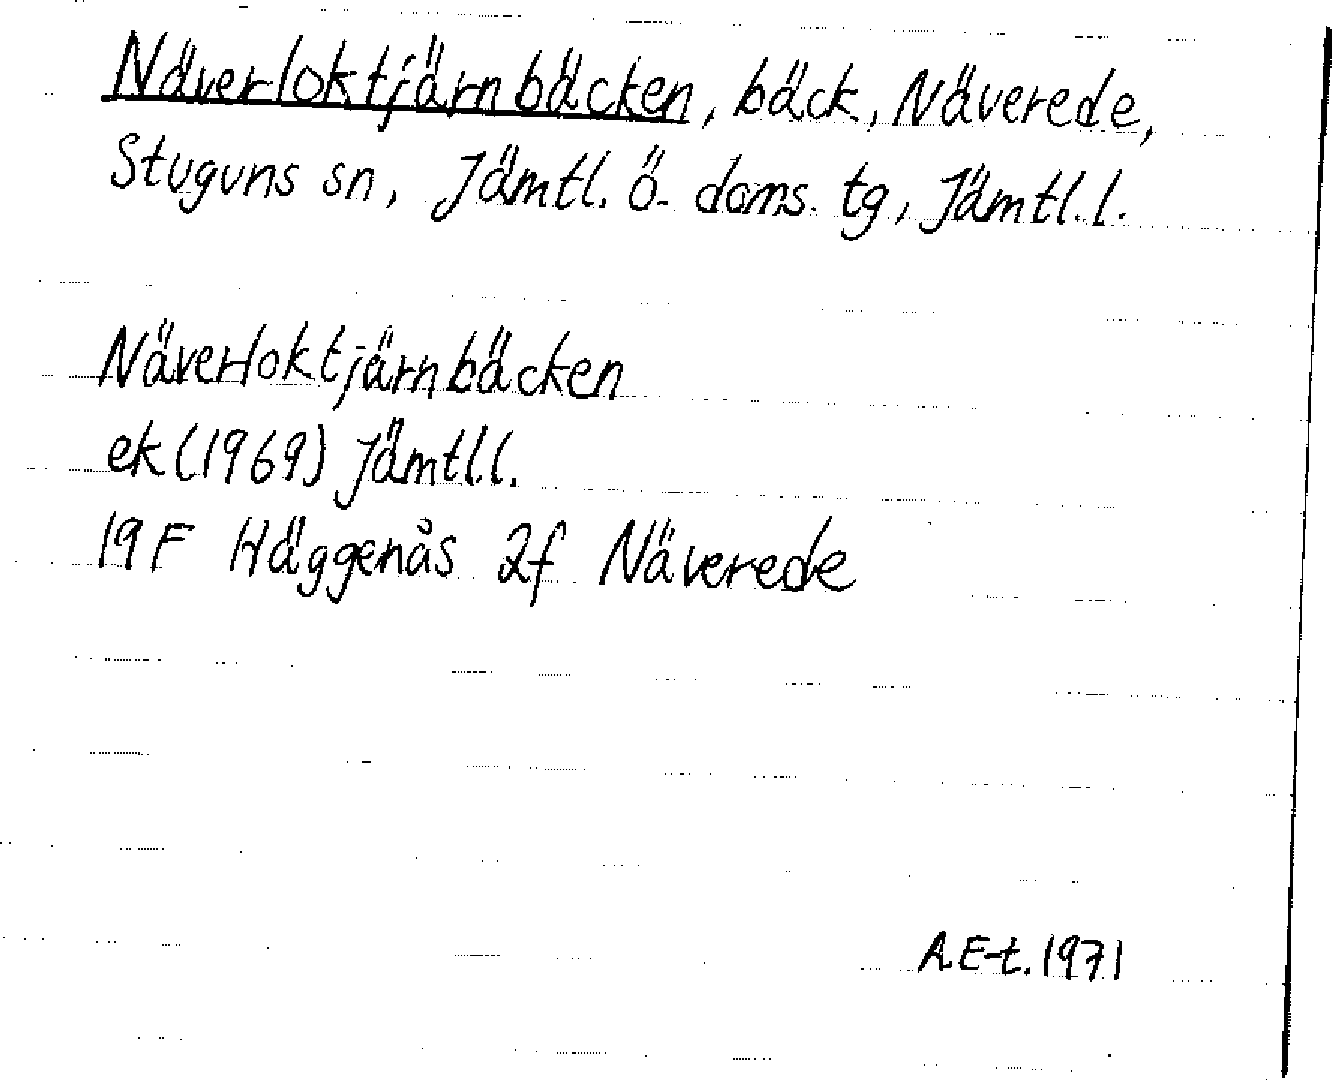 Näverloktjärnbäcken, bäck, Näverede,
Stuguns sn, Jämtl. ö. doms. tg, Jämtl. l.
Näverloktjärnbäcken
ek (1969) Jämtl.l.
19F Häggenås 2f Näverede
A.E-t. 1971